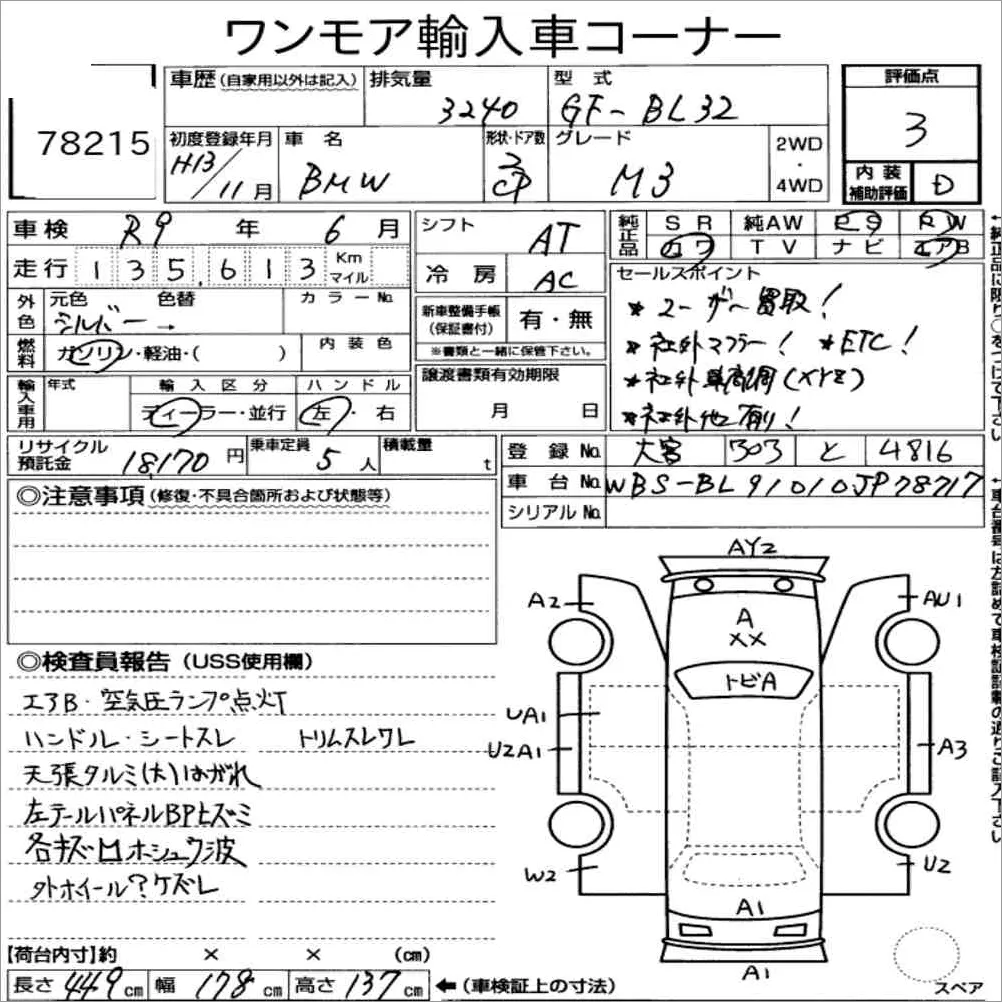 ワンモア輸入車コーナー
78215
車歴(自家用以外は記入)
排気量
3240
型式
GF-BL32
評価点
3
初度登録年月
H13/11月
車名
BMW
形状・ドア数
2
CP
グレード
M3
2WD
・
4WD
内装
補助評価
D
車検 R9年 6月
シフト
AT
純正品
SR 純AW PS PW
カワ TV ナビ エアB
走行 135,613 Km
マイル
冷房 AC
セールスポイント
*ユーザー買取!
*社外マフラー! *ETC!
*社外車高調(XYZ)
*社外他有り!
外色
元色 色替
シルバー →
カラーNo.
新車整備手帳
(保証書付)
有・無
※書類と一緒に保管下さい。
燃料
ガソリン・軽油・( )
内装色
譲渡書類有効期限
月 日
輸入車用
年式
輸入区分
ディーラー・並行
ハンドル
左・右
リサイクル
預託金
18170円
乗車定員
5人
積載量
t
登録No. 大宮 303 と 4816
車台No. WBS-BL91010JP78717
シリアルNo.
◎注意事項(修復・不具合箇所および状態等)
◎検査員報告(USS使用欄)
エアB・空気圧ランプ点灯
ハンドル・シートスレ トリムスレワレ
天張タルミ(大)はがれ
左テールパネルBP上ズミ
各キズ凹ホシュウ波
外ホイール?ケズレ
AY2
A2
AU1
A
XX
トビA
UA1
U2A1
A3
W2
U2
A1
A1
スペア
【荷台内寸】約 × × (cm)
長さ449cm 幅178cm 高さ137cm ←(車検証上の寸法)
↑純正品に限り○をつけて下さい
↑車台番号は左詰めで車検証記載の通りご記入下さい